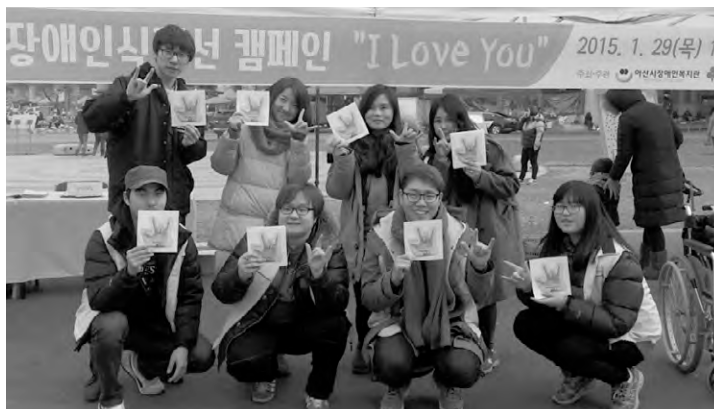 장애인식개선 캠페인 "I Love You"
2015. 1. 29(목) 1
주최·주관 아산시장애인복지관